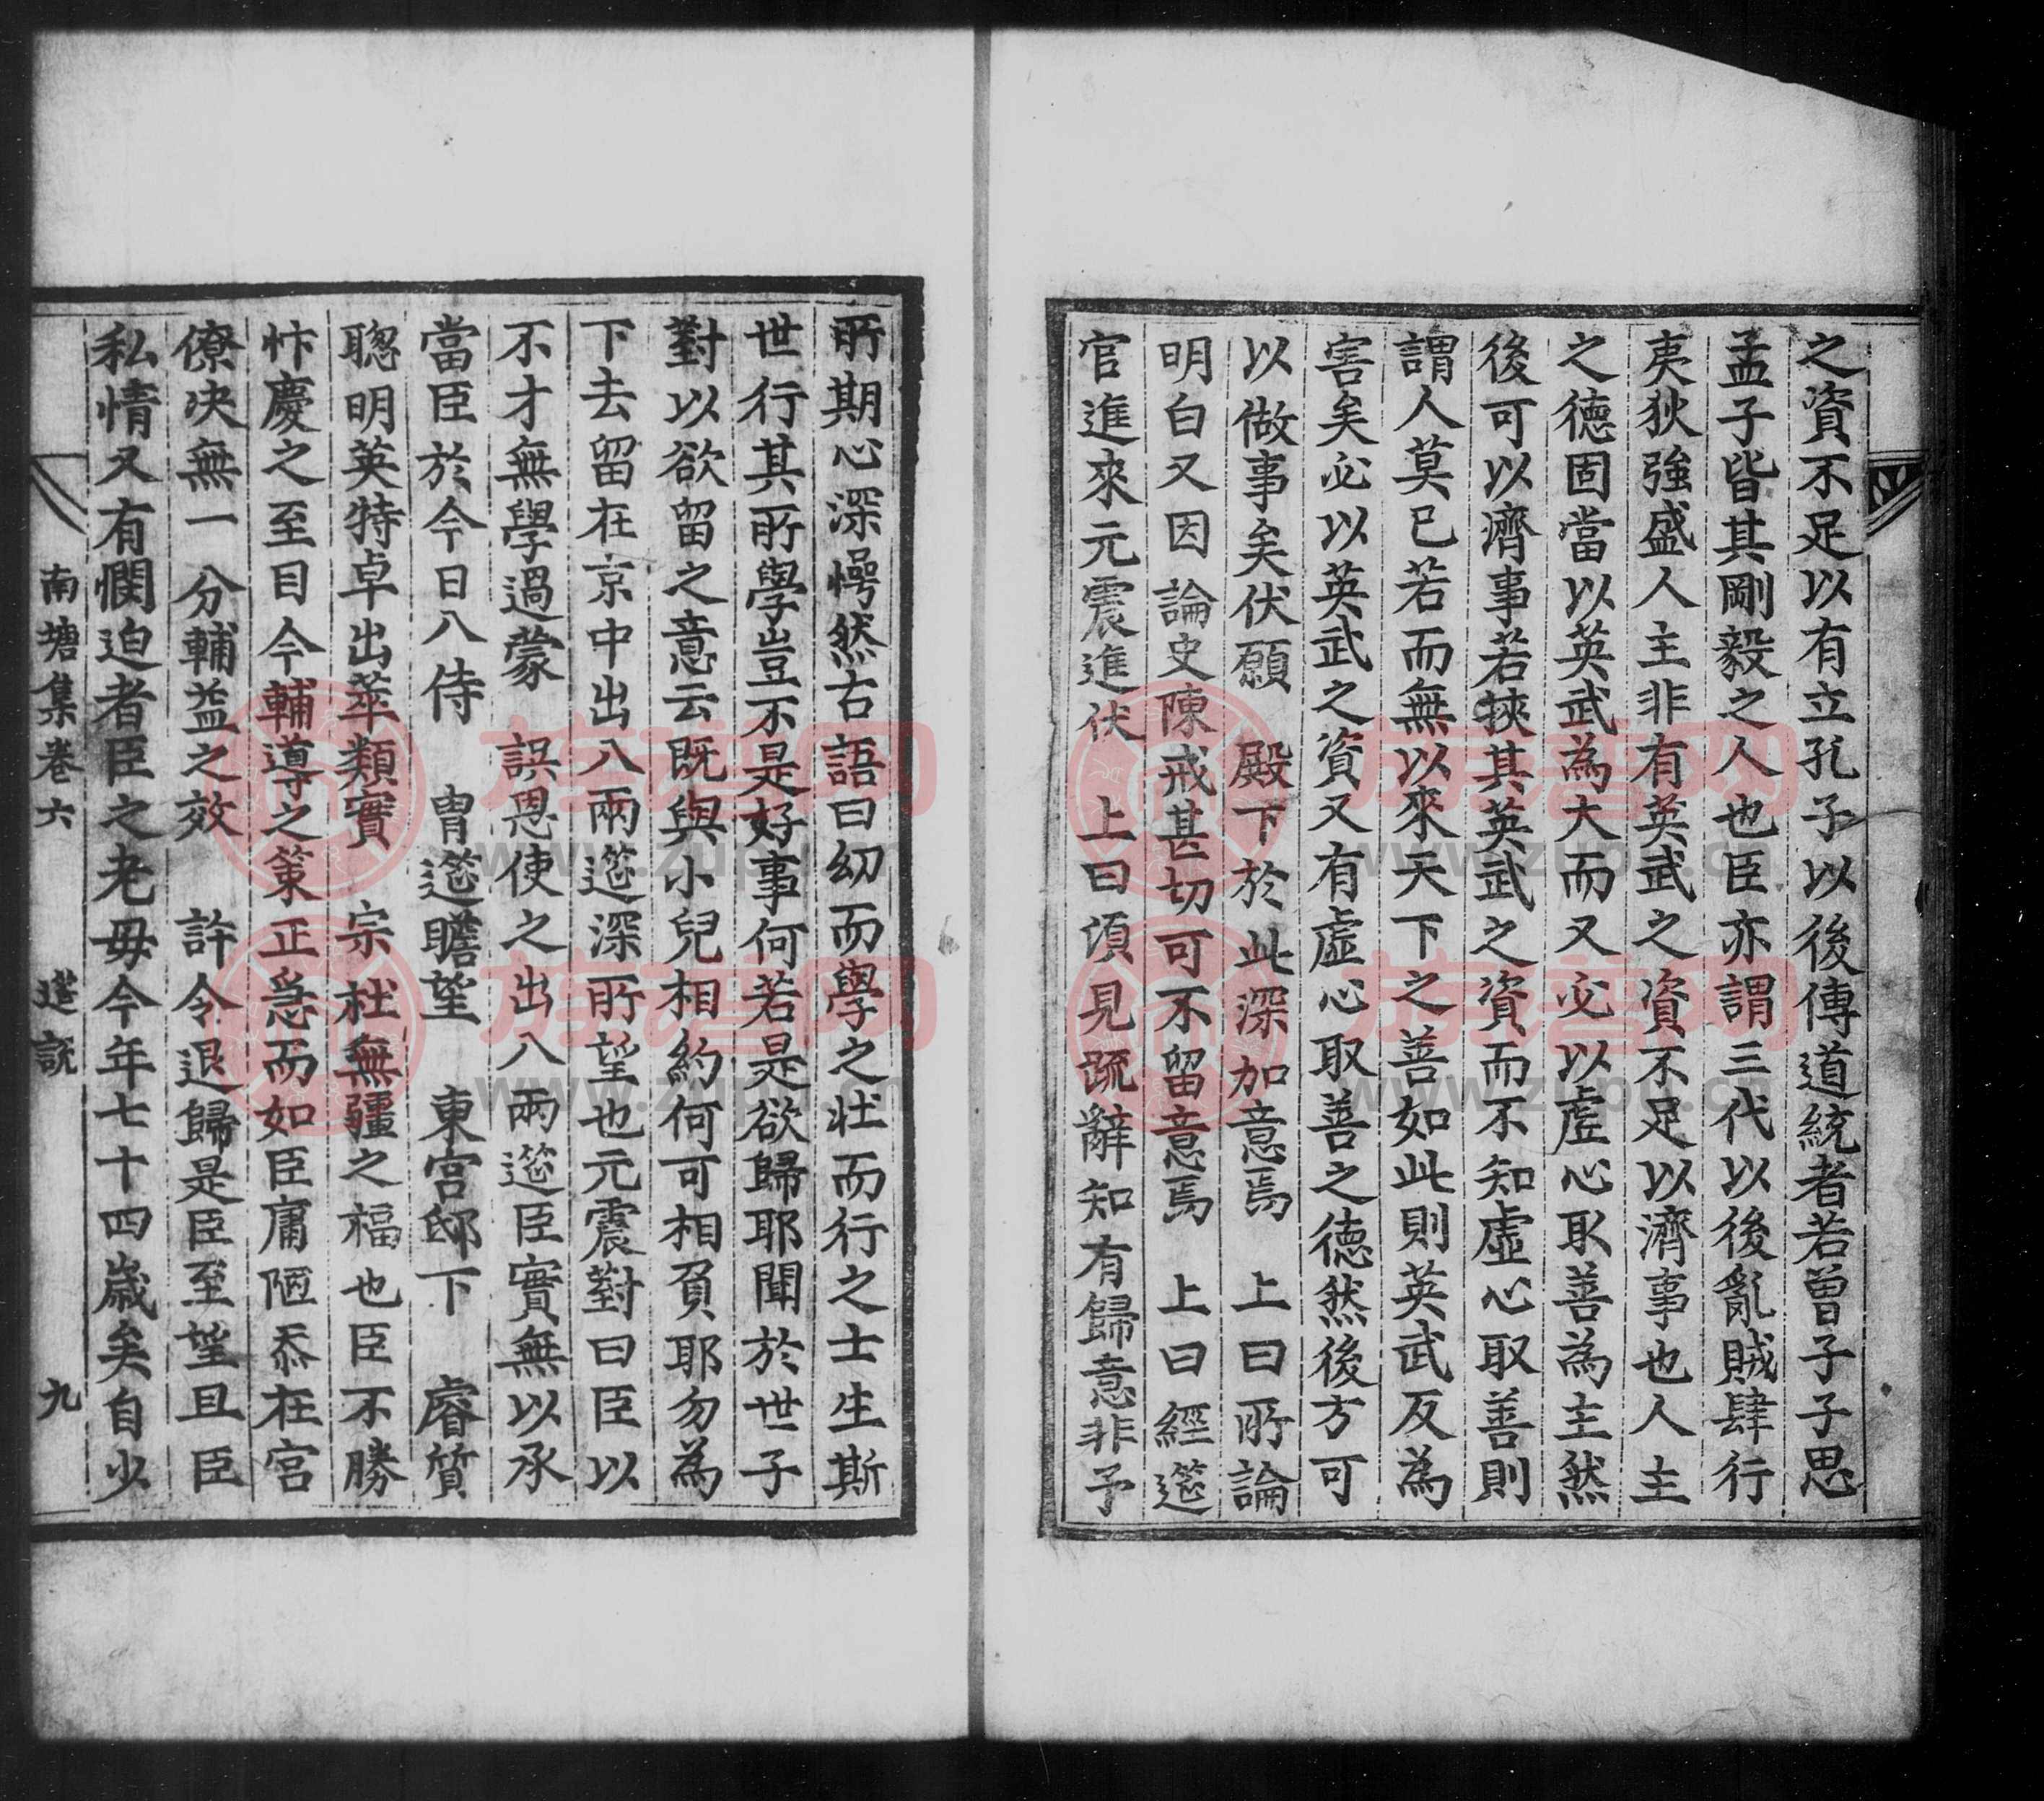 之資不足以有立孔子以後傳道統者若曾子子思
孟子皆其剛毅之人也臣亦謂三代以後亂賊肆行
夷狄強盛人主非有英武之資不足以濟事也人主
之德固當以英武為大而又必以虛心取善為主然
後可以濟事若挾其英武之資而不知虛心取善則
謂人莫已若而無以來天下之善如此則英武反為
害矣必以英武之資又有虛心取善之德然後方可
以做事矣伏願 殿下於此深加意焉 上曰所論
明白又因論史陳戒甚切可不留意焉 上曰經筵
官進來元震進伏 上曰湏見疏辭知有歸意非予
所期心深愕然古語曰幼而學之壯而行之士生斯
世行其所學豈不是好事何若是欲歸耶聞於世子
對以欲留之意云既與小兒相約何可相負耶勿為
下去留在京中出入兩筵深所望也元震對曰臣以
不才無學過蒙 誤恩使之出入兩筵臣實無以承
當臣於今日入侍 胄筵瞻望 東宮邸下 睿質
聰明英特卓出萃類實 宗社無疆之福也臣不勝
忭慶之至目今輔導之策正急而如臣庸陋忝在宮
僚决無一分輔益之效 許令退歸是臣至望且臣
私情又有憫迫者臣之老母今年七十四歲矣自少
南塘集卷六 筵說 九
族谱网
www.zupu.cn
族谱网
www.zupu.cn
族谱网
www.zupu.cn
族谱网
www.zupu.cn